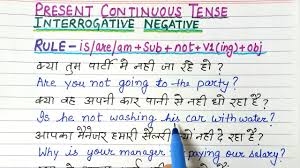 PRESENT CONTINUOUS TENSE
INTERROGATIVE NEGATIVE
RULE- is/are/am + Sub + not + V1(ing) + obj
क्या तुम पार्टी में नहीं जा रहे हो ?
Are you not going to the party?
क्या वह अपनी कार पानी से नहीं धो रहा है ?
Is he not washing his car with water?
आपका मैनेजर हमारी सैलरी नहीं दे रहा है ?
Why is your manager paying our salary?